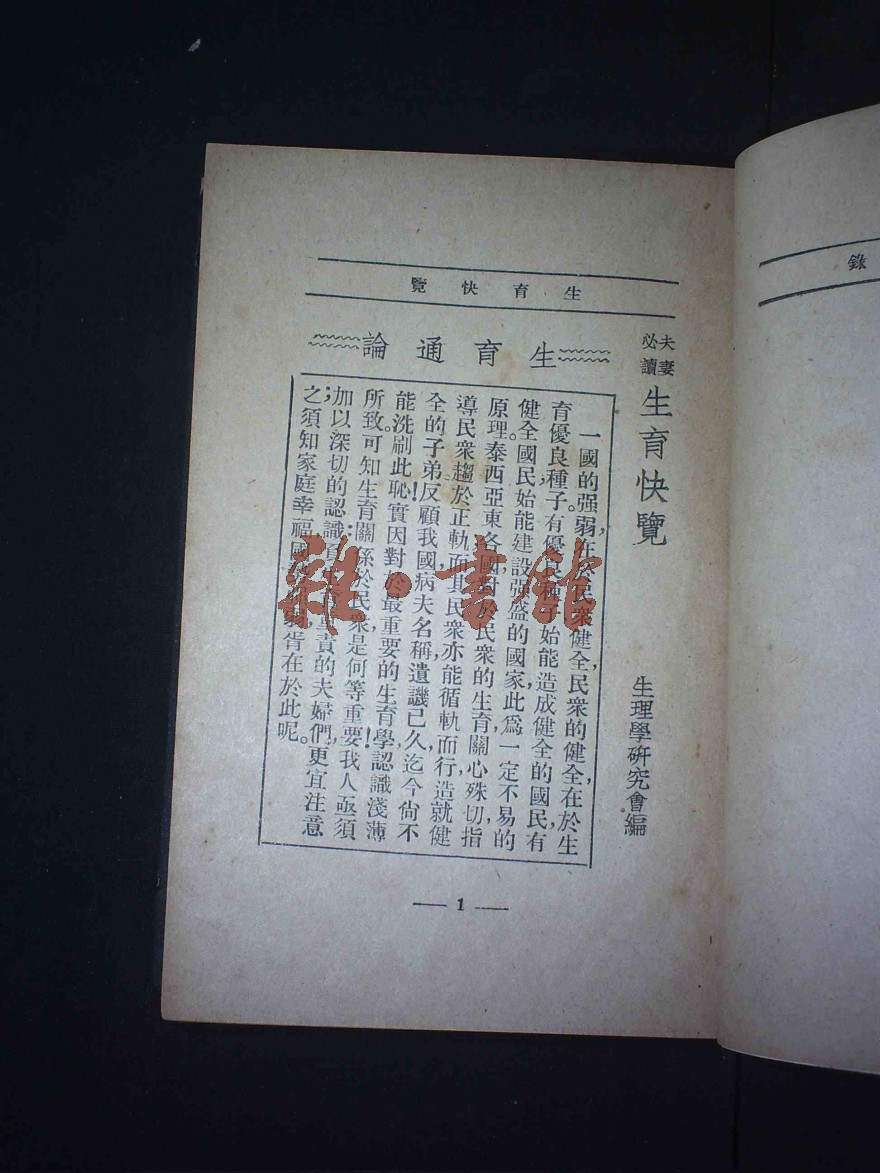 錄
生育快覽
夫妻
必讀
生育快覽
生理學研究會編
生育通論
一國的强弱，在於民衆健全，民衆的健全，在於生
育優良種子。有優良種子，始能造成健全的國民，有
健全國民，始能建設强盛的國家，此爲一定不易的
原理。泰西亞東各國，對於民衆的生育，關心殊切，指
導民衆，趨於正軌，而其民衆亦能循軌而行，造就健
全的子弟！反顧我國，病夫名稱，遺譏已久，迄今尙不
能洗刷此恥，實因對於最重要的生育學，認識淺薄
所致。可知生育關係於民衆，是何等重要！我人亟須
加以深切的認識；重責的夫婦們，更宜注意
之，須知家庭幸福，國胥在於此呢。
雜·書館
1